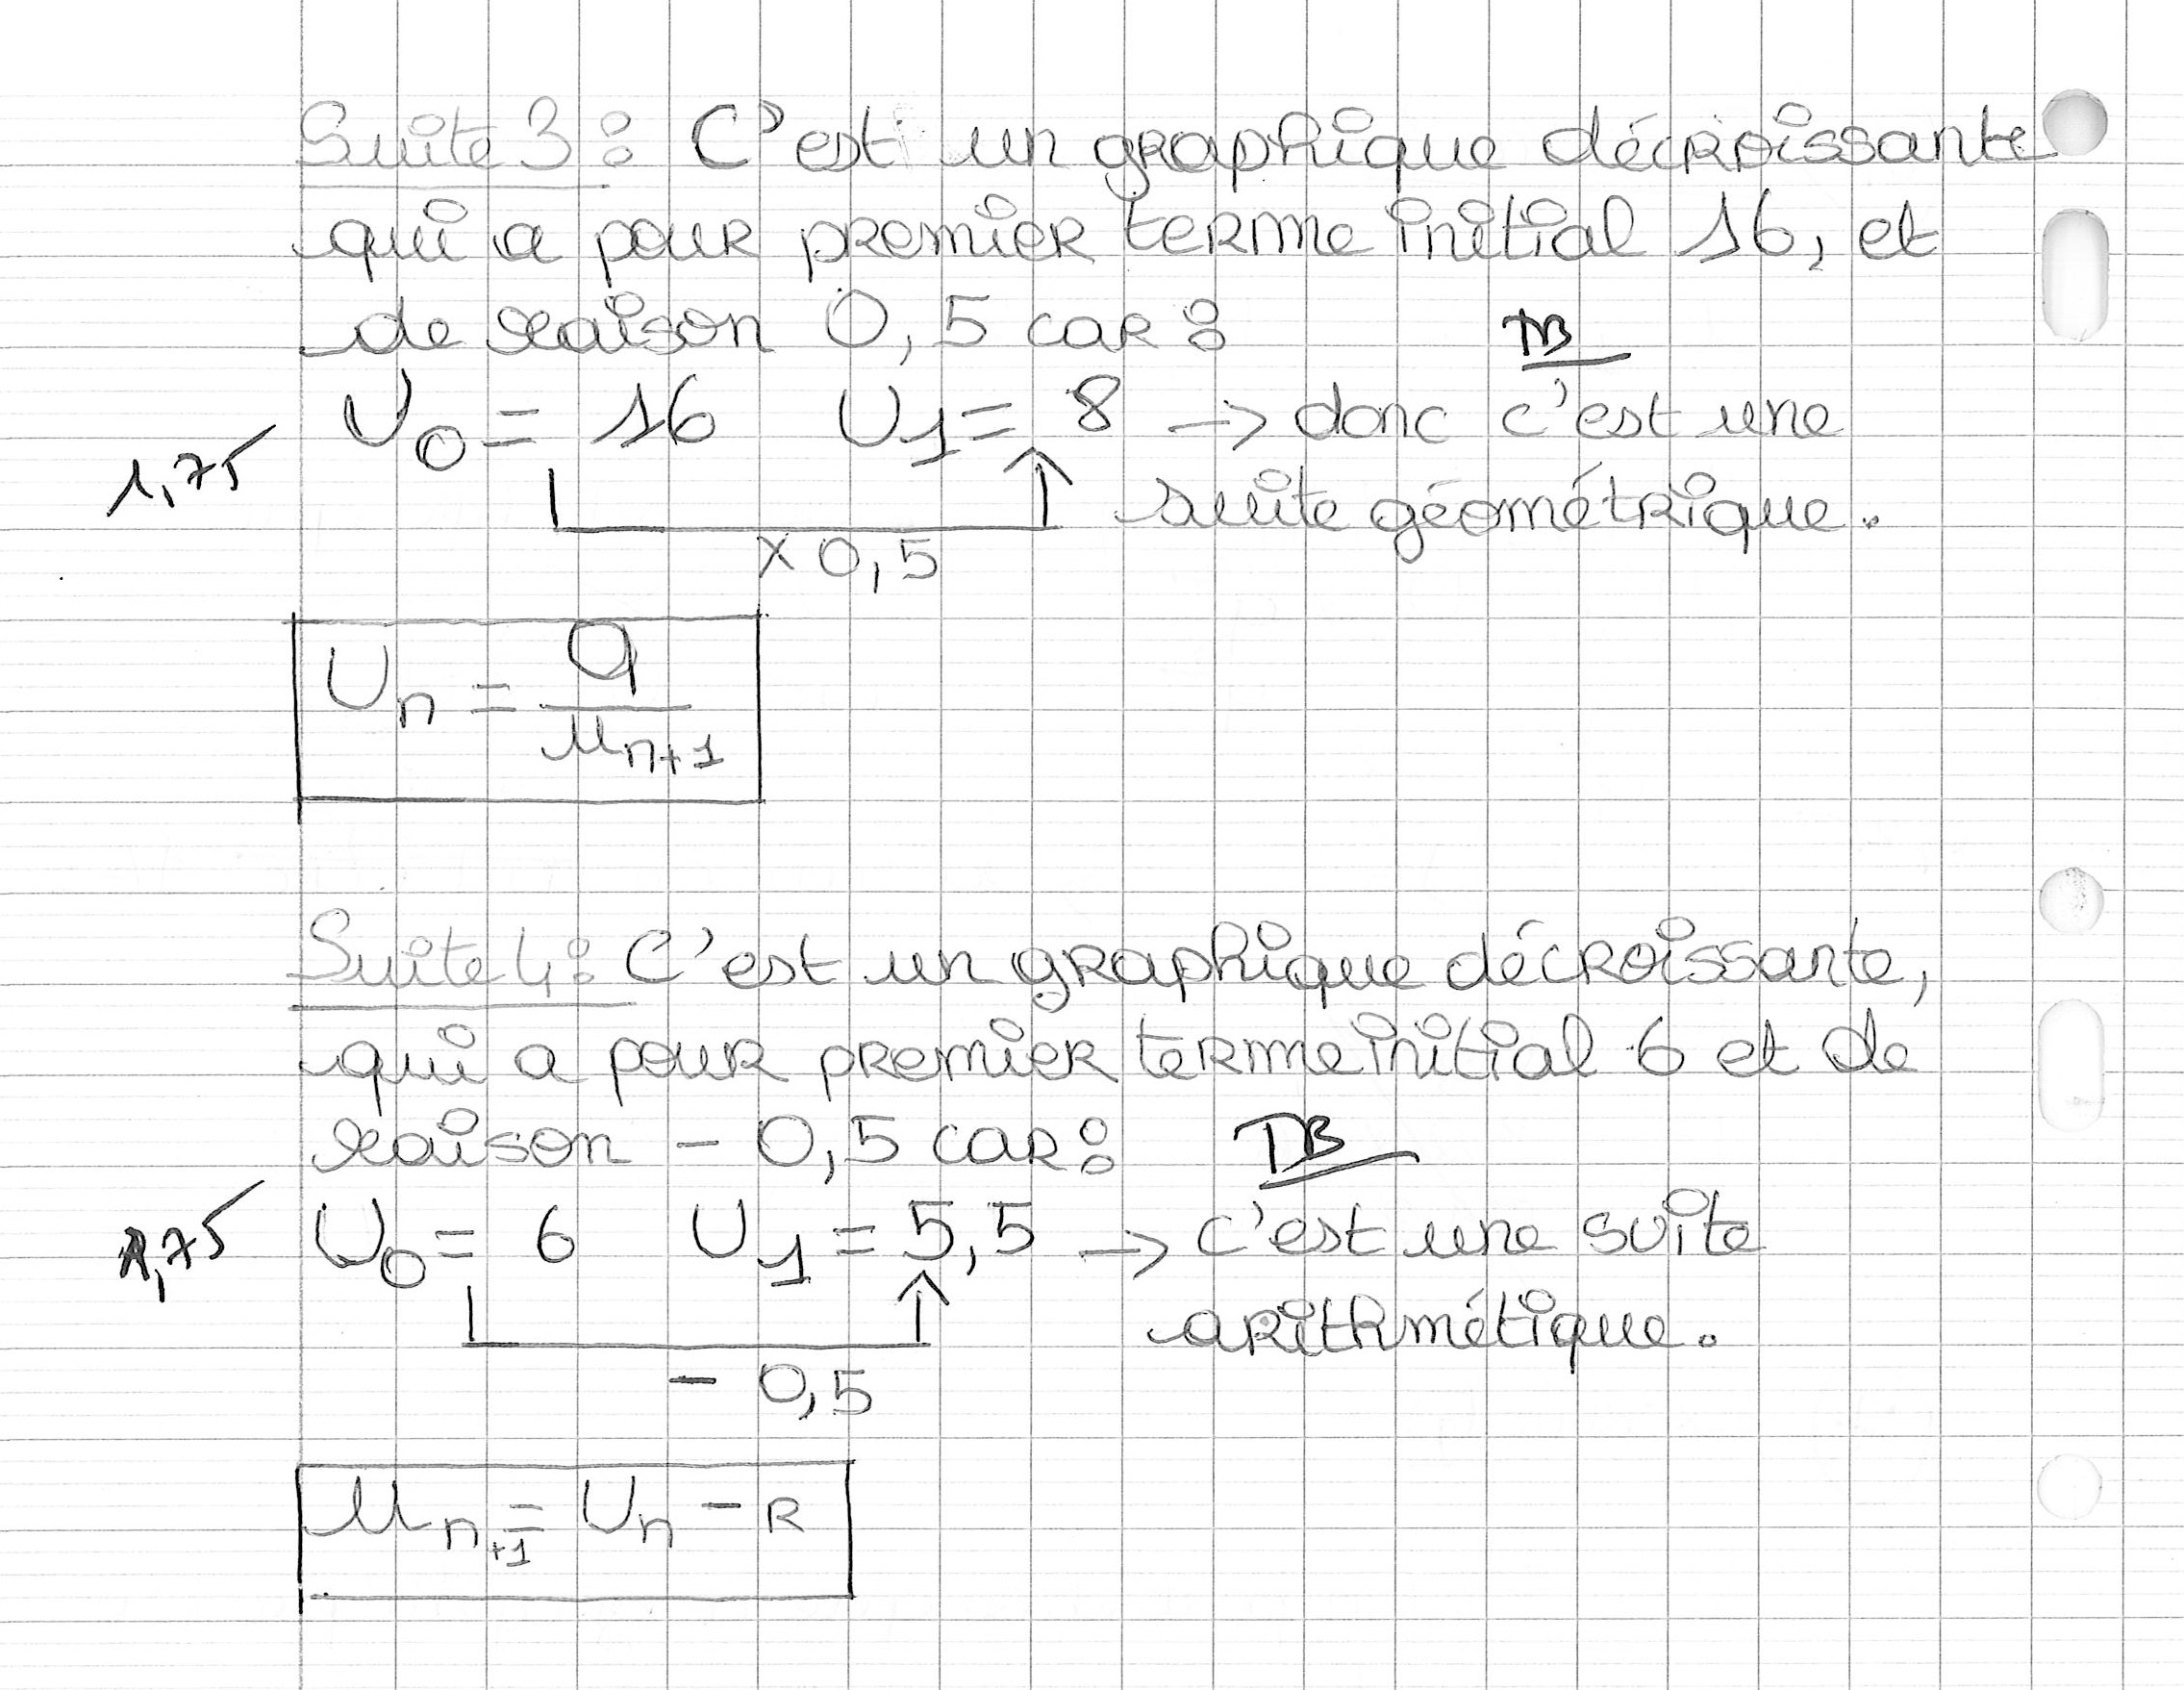 Suite 3 : C'est un graphique décroissante
qui a pour premier terme initial 16, et
de raison 0,5 car :
TB
U0 = 16 U1 = 8 → donc c'est une
1,75
suite géométrique.
× 0,5
Un = q / un+1
Suite 4 : C'est un graphique décroissante,
qui a pour premier terme initial 6 et de
raison - 0,5 car :
TB
1,75
U0 = 6 U1 = 5,5 → c'est une suite
arithmétique.
- 0,5
un+1 = Un - R